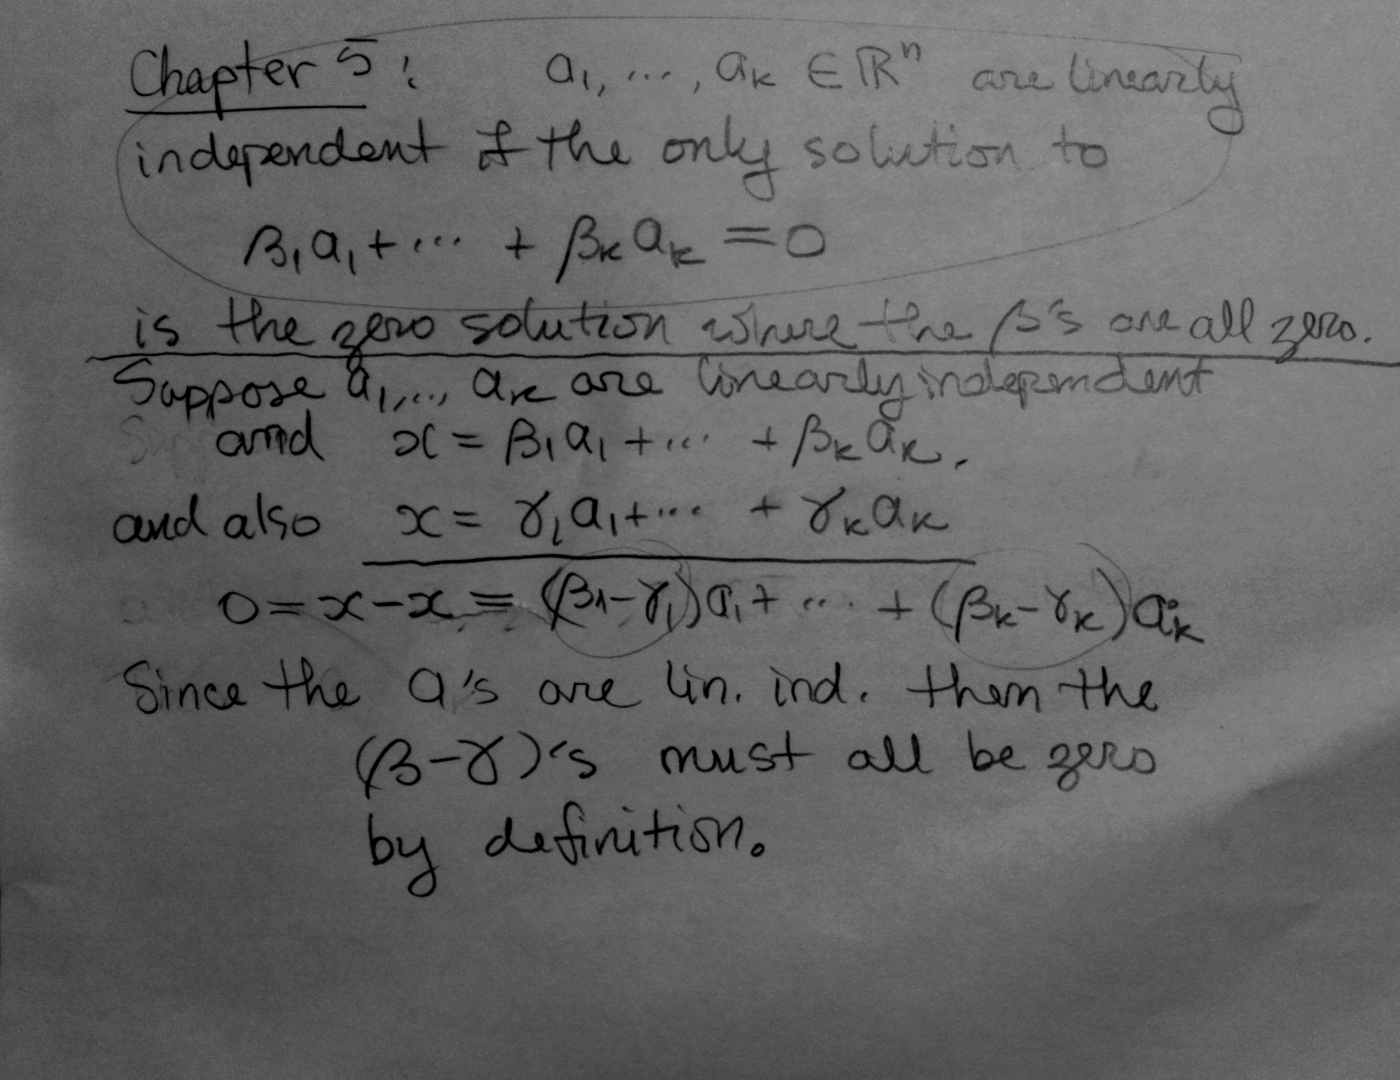 Chapter 5: a₁, ..., aₖ ∈ ℝⁿ are linearly
independent if the only solution to
β₁a₁ + ... + βₖaₖ = 0
is the zero solution where the β's are all zero.
Suppose a₁, ..., aₖ are linearly independent
and x = β₁a₁ + ... + βₖaₖ.
and also x = γ₁a₁ + ... + γₖaₖ
0 = x - x = (β₁-γ₁)a₁ + ... + (βₖ-γₖ)aₖ
Since the a's are lin. ind. then the
(β-γ)'s must all be zero
by definition.